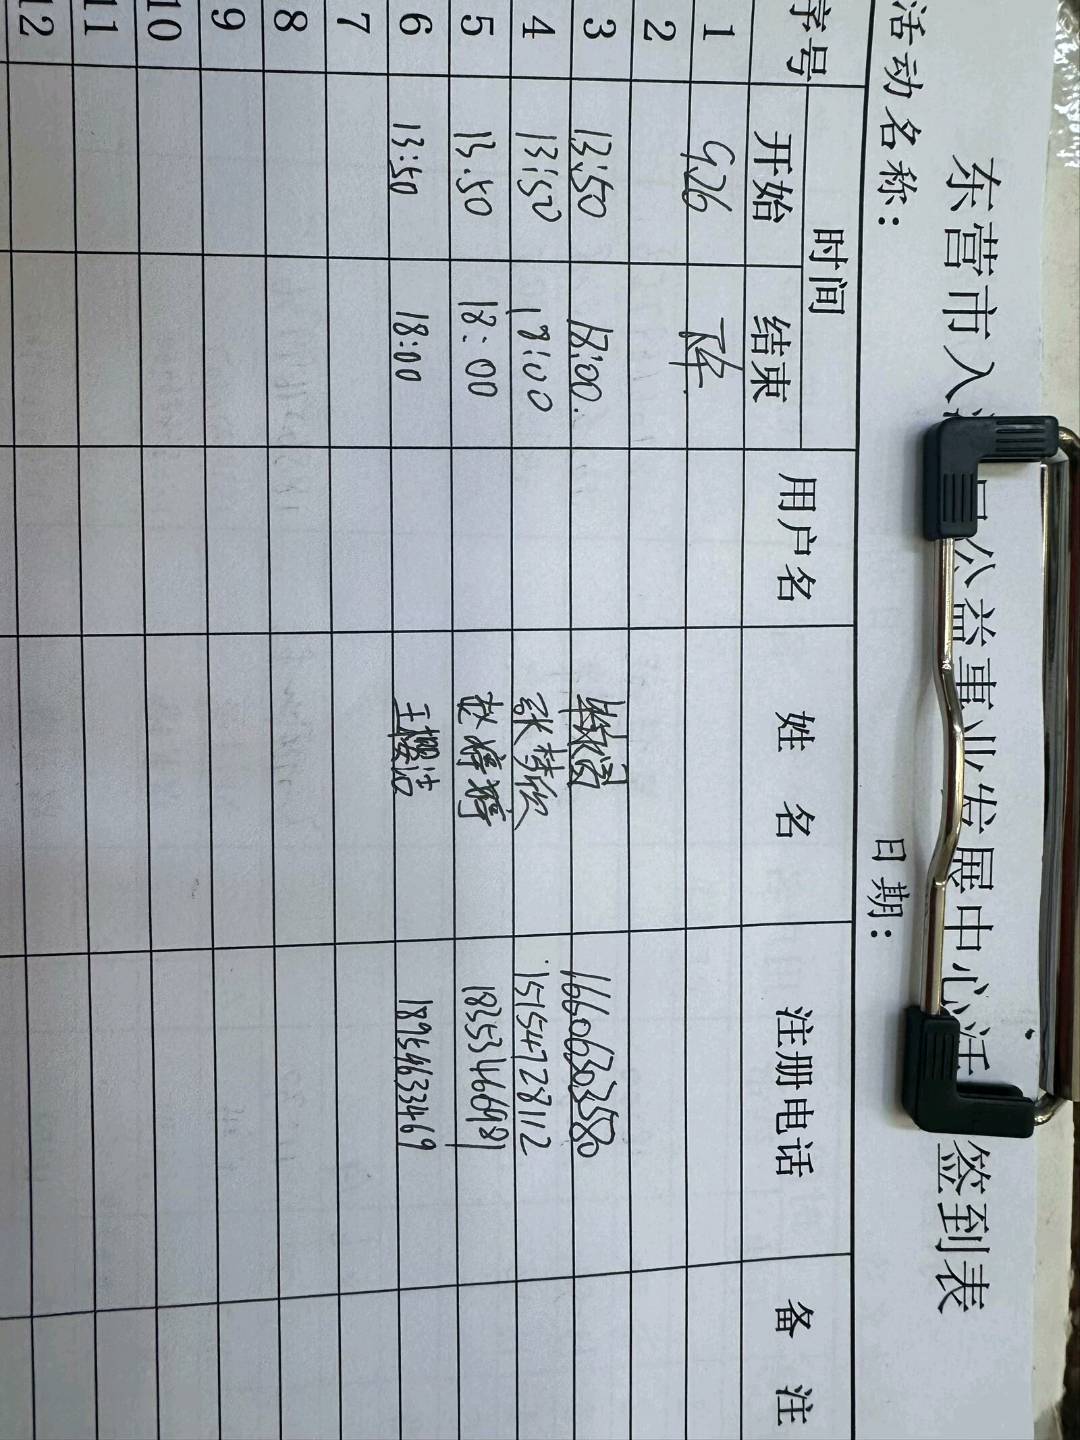 东营市入 公益事业发展中心活 签到表
活动名称： 日期：
序号 时间 用户名 姓名 注册电话 备注
开始 结束
1 9.26 下午
2
3 13:50 18:00. 16606303580
4 13:50 18:00 张梦欣 15154728112
5 13.50 18:00 赵婷婷 18353466981
6 13:50 18:00 王樱洁 18954633469
7
8
9
10
11
12